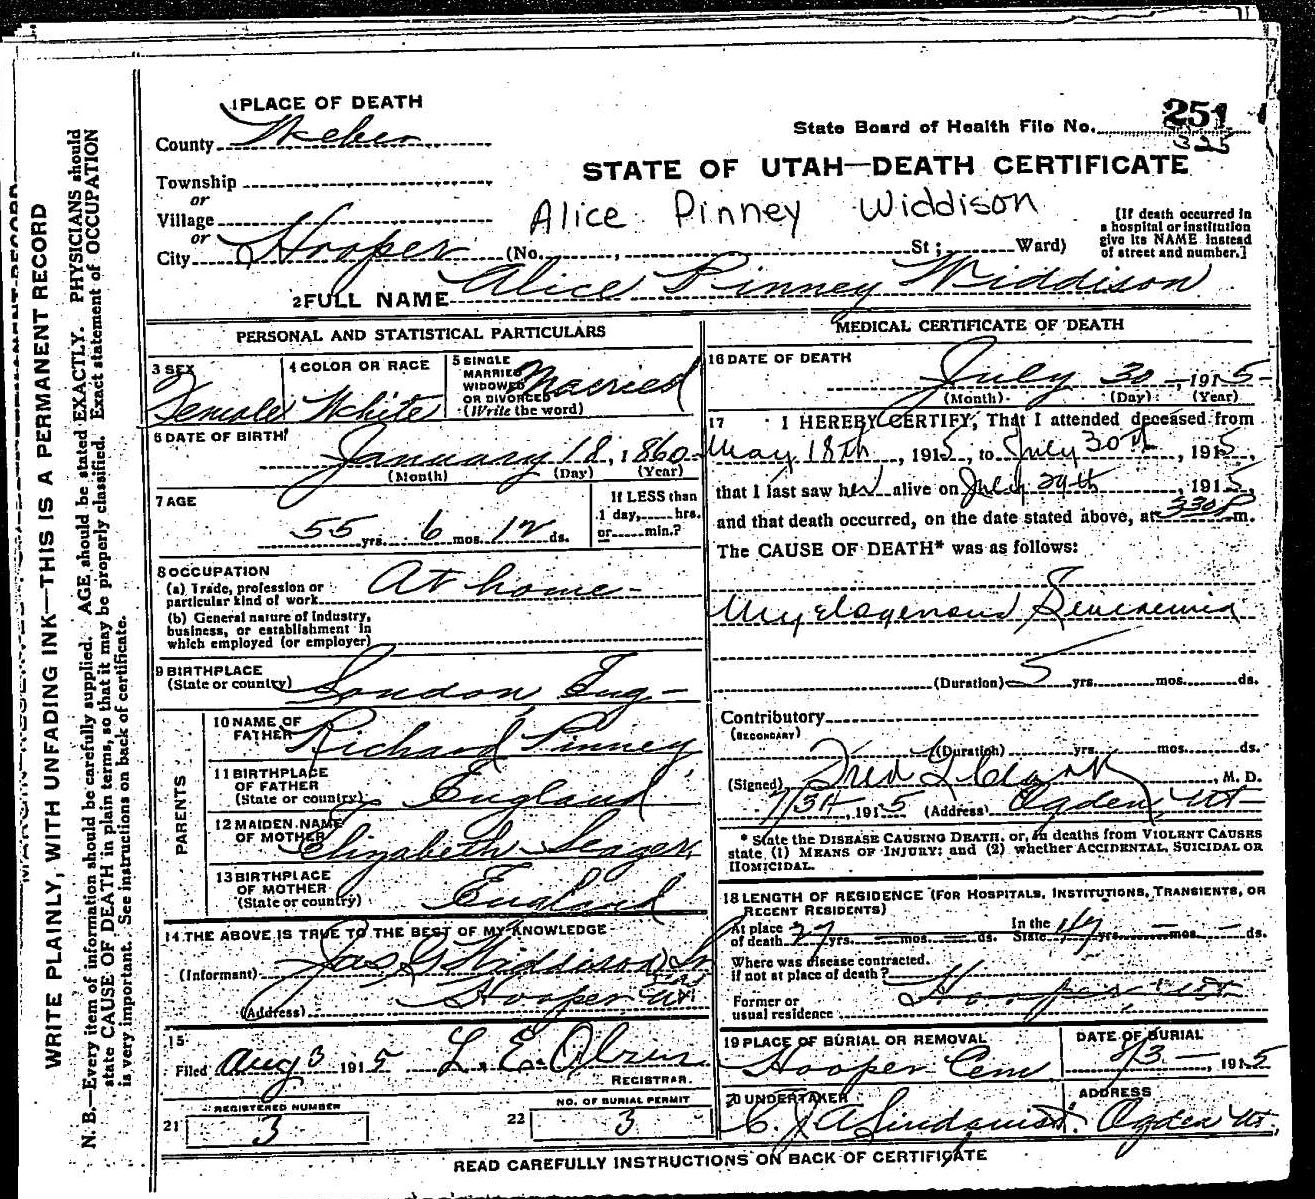 1 PLACE OF DEATH
County Weber
State Board of Health File No. 251
325
STATE OF UTAH—DEATH CERTIFICATE
Township
or
Village
or
City Hooper (No. , St; Ward)
Alice Pinney Widdison
[If death occurred in
a hospital or institution
give its NAME instead
of street and number.]
2 FULL NAME Alice Pinney Widdison
PERSONAL AND STATISTICAL PARTICULARS
3 SEX
Female
4 COLOR OR RACE
White
5 SINGLE
MARRIED
WIDOWED
OR DIVORCED
(Write the word)
Married
6 DATE OF BIRTH
January 18, 1860
(Month) (Day) (Year)
7 AGE
55 yrs. 6 mos. 12 ds.
If LESS than
1 day, hrs.
or min.?
8 OCCUPATION
(a) Trade, profession or
particular kind of work At home
(b) General nature of industry,
business, or establishment in
which employed (or employer)
9 BIRTHPLACE
(State or country) London, Eng-
PARENTS
10 NAME OF
FATHER Richard Pinney
11 BIRTHPLACE
OF FATHER
(State or country) England
12 MAIDEN NAME
OF MOTHER Elizabeth Seager
13 BIRTHPLACE
OF MOTHER
(State or country) England
14 THE ABOVE IS TRUE TO THE BEST OF MY KNOWLEDGE
(Informant) Jas G Widdison Sr
(Address) Hooper Ut
15
Filed Aug 3 1915 L. E.
REGISTRAR.
21 REGISTERED NUMBER
3
22 NO. OF BURIAL PERMIT
3
MEDICAL CERTIFICATE OF DEATH
16 DATE OF DEATH
July 30, 1915
(Month) (Day) (Year)
17 I HEREBY CERTIFY, That I attended deceased from
May 18th, 1915, to July 30th, 1915,
that I last saw her alive on July 29th, 1915,
and that death occurred, on the date stated above, at 330 P m.
The CAUSE OF DEATH* was as follows:
Myelogenous
(Duration) 5 yrs. mos. ds.
Contributory
(SECONDARY)
(Duration) yrs. mos. ds.
(Signed) Fred Clark, M. D.
7/31, 1915 (Address) Ogden Ut
* State the DISEASE CAUSING DEATH, or, in deaths from VIOLENT CAUSES
state (1) MEANS OF INJURY; and (2) whether ACCIDENTAL, SUICIDAL OR
HOMICIDAL.
18 LENGTH OF RESIDENCE (FOR HOSPITALS, INSTITUTIONS, TRANSIENTS, OR
RECENT RESIDENTS)
At place
of death 27 yrs. mos. ds. In the
State yrs. mos. ds.
Where was disease contracted,
if not at place of death?
Former or
usual residence Hooper Ut
19 PLACE OF BURIAL OR REMOVAL
Hooper Cem
DATE OF BURIAL
8/3, 1915
20 UNDERTAKER
C. J. A Lindquist
ADDRESS
Ogden Ut.
READ CAREFULLY INSTRUCTIONS ON BACK OF CERTIFICATE
WRITE PLAINLY, WITH UNFADING INK—THIS IS A PERMANENT RECORD
N. B.—Every item of information should be carefully supplied. AGE should be stated EXACTLY. PHYSICIANS should
state CAUSE OF DEATH in plain terms, so that it may be properly classified. Exact statement of OCCUPATION
is very important. See instructions on back of certificate.